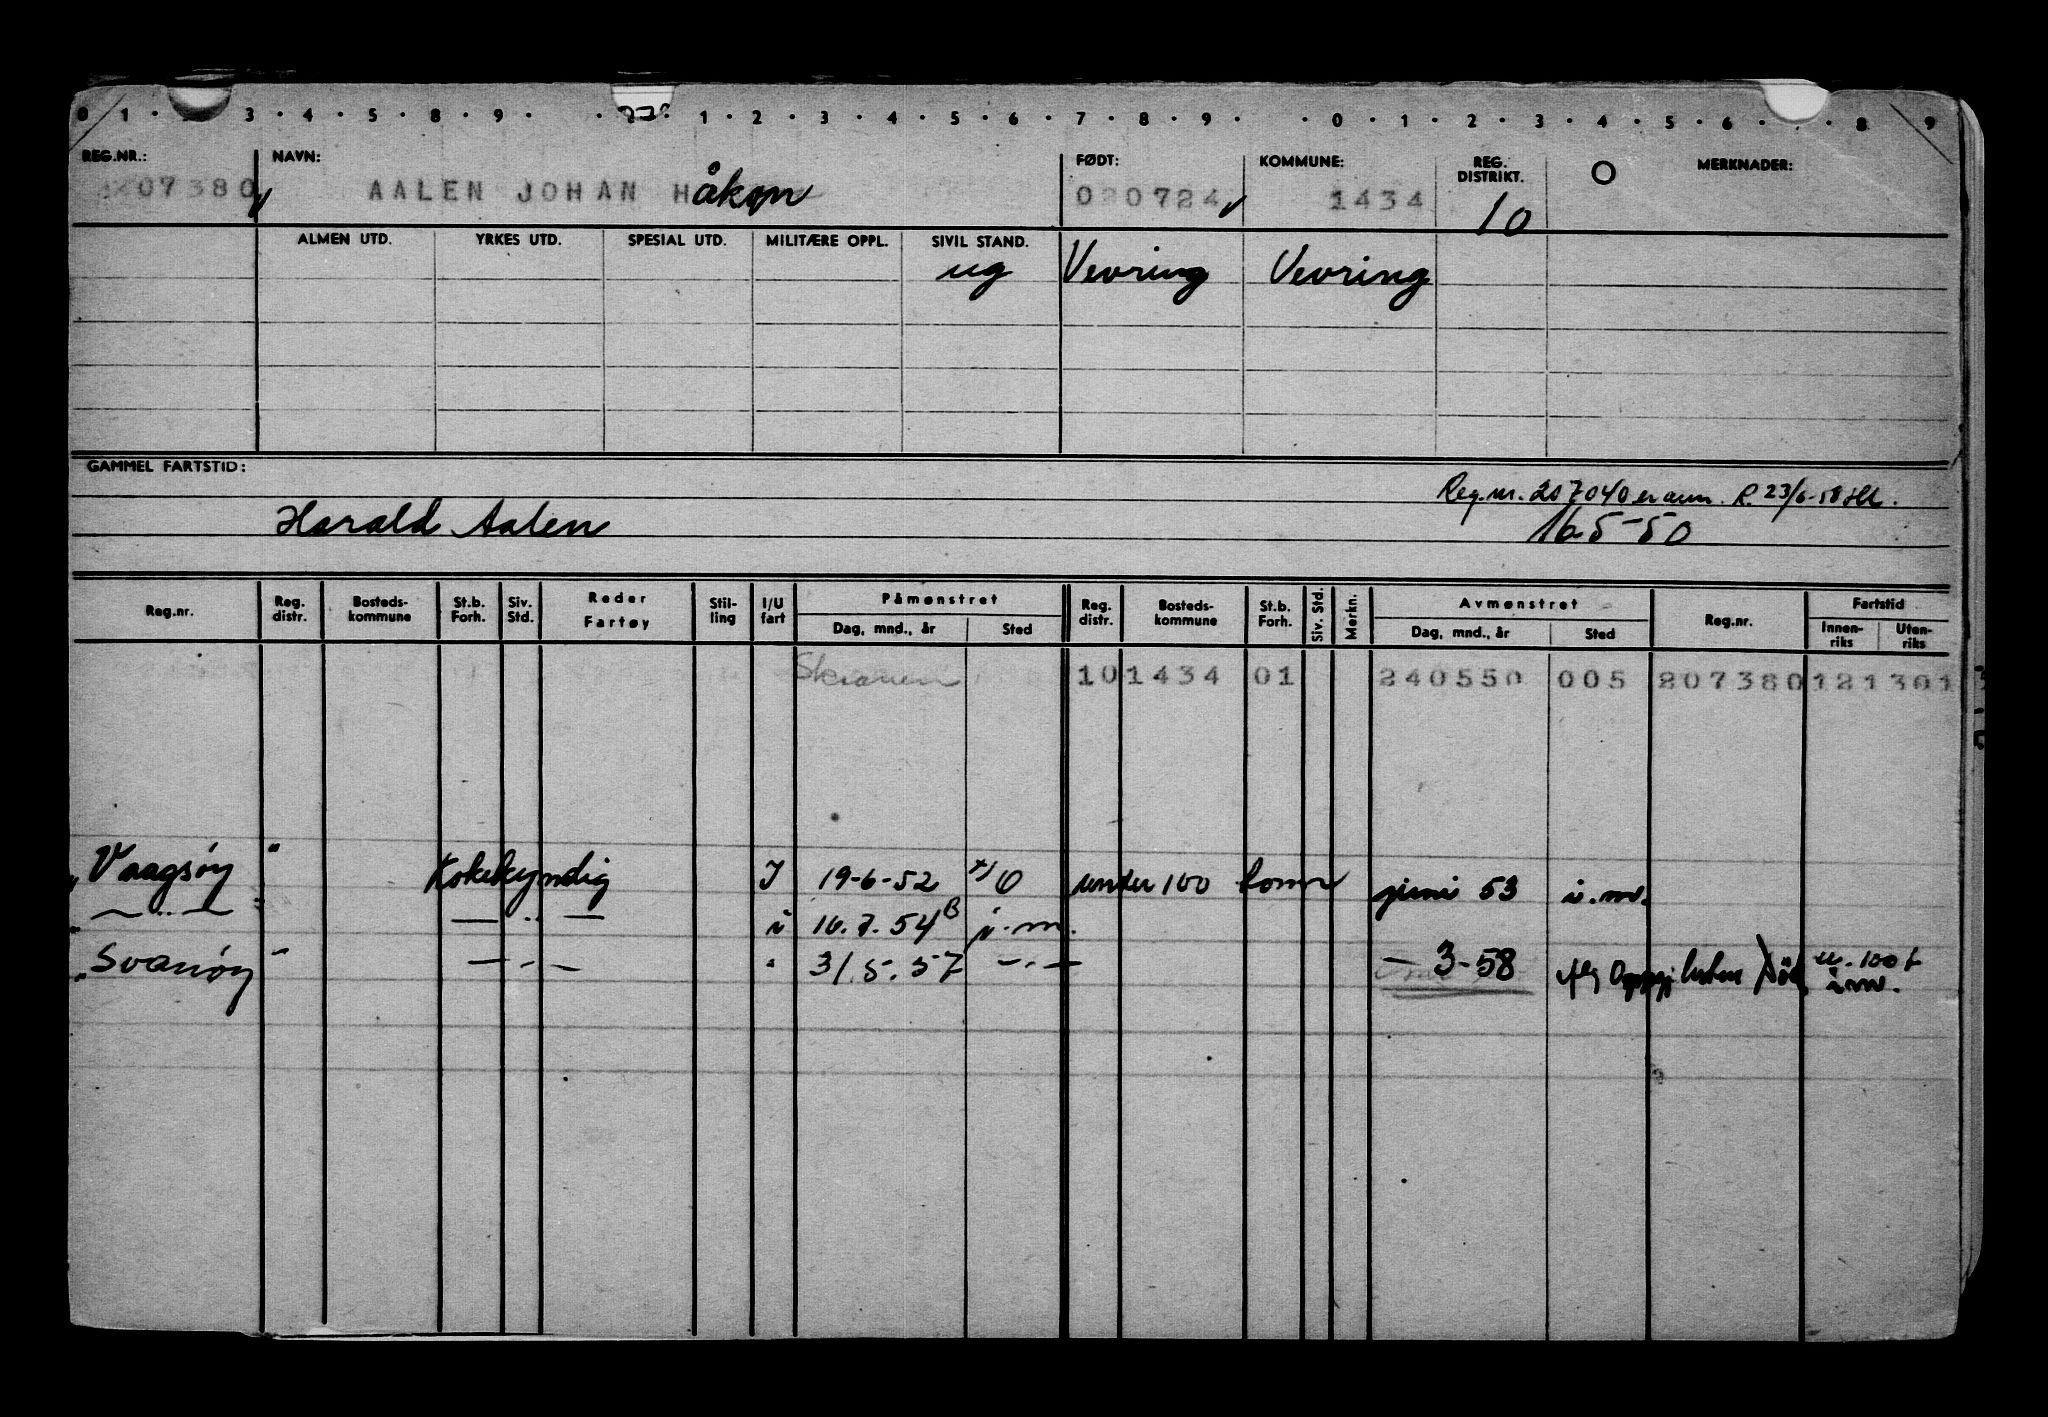 0 1 · 3 · 4 · 5 · 8 · 9 · · 1 · 2 · 3 · 4 · 5 · 6 · 7 · 8 · 9 · · 0 · 1 · 2 · 3 · 4 · 5 · 6 · · 8 9
REG.NR.: NAVN: FØDT: KOMMUNE: REG. DISTRIKT. MERKNADER:
207380 AALEN JOHAN Håkon 020724 1434 10
ALMEN UTD. YRKES UTD. SPESIAL UTD. MILITÆRE OPPL. SIVIL STAND.
ug Vevring Vevring
GAMMEL FARTSTID:
Reg.nr. 207040 er ann. R. 23/6-58
Harald Aalen 16-5-50
Reg.nr. Reg. distr. Bosteds-kommune St.b. Forh. Siv. Std. Reder Fartøy Stil-ling I/U fart Påmønstret Dag, mnd., år Sted Reg. distr. Bosteds-kommune St.b. Forh. Siv. Std. Merkn. Avmønstret Dag, mnd., år Sted Reg.nr. Fartstid Innen-riks Uten-riks
10 1434 01 240550 005 207380 121301
" Vaagsøy " Kokekyndig I 19-6-52 under 100 tonn juni 53 i.m.
" — " — — " — i 16.7.54 i.m.
" Svanøy " — " — " 31.5.57 — " — — 3-58 u. 100 t
i.m.